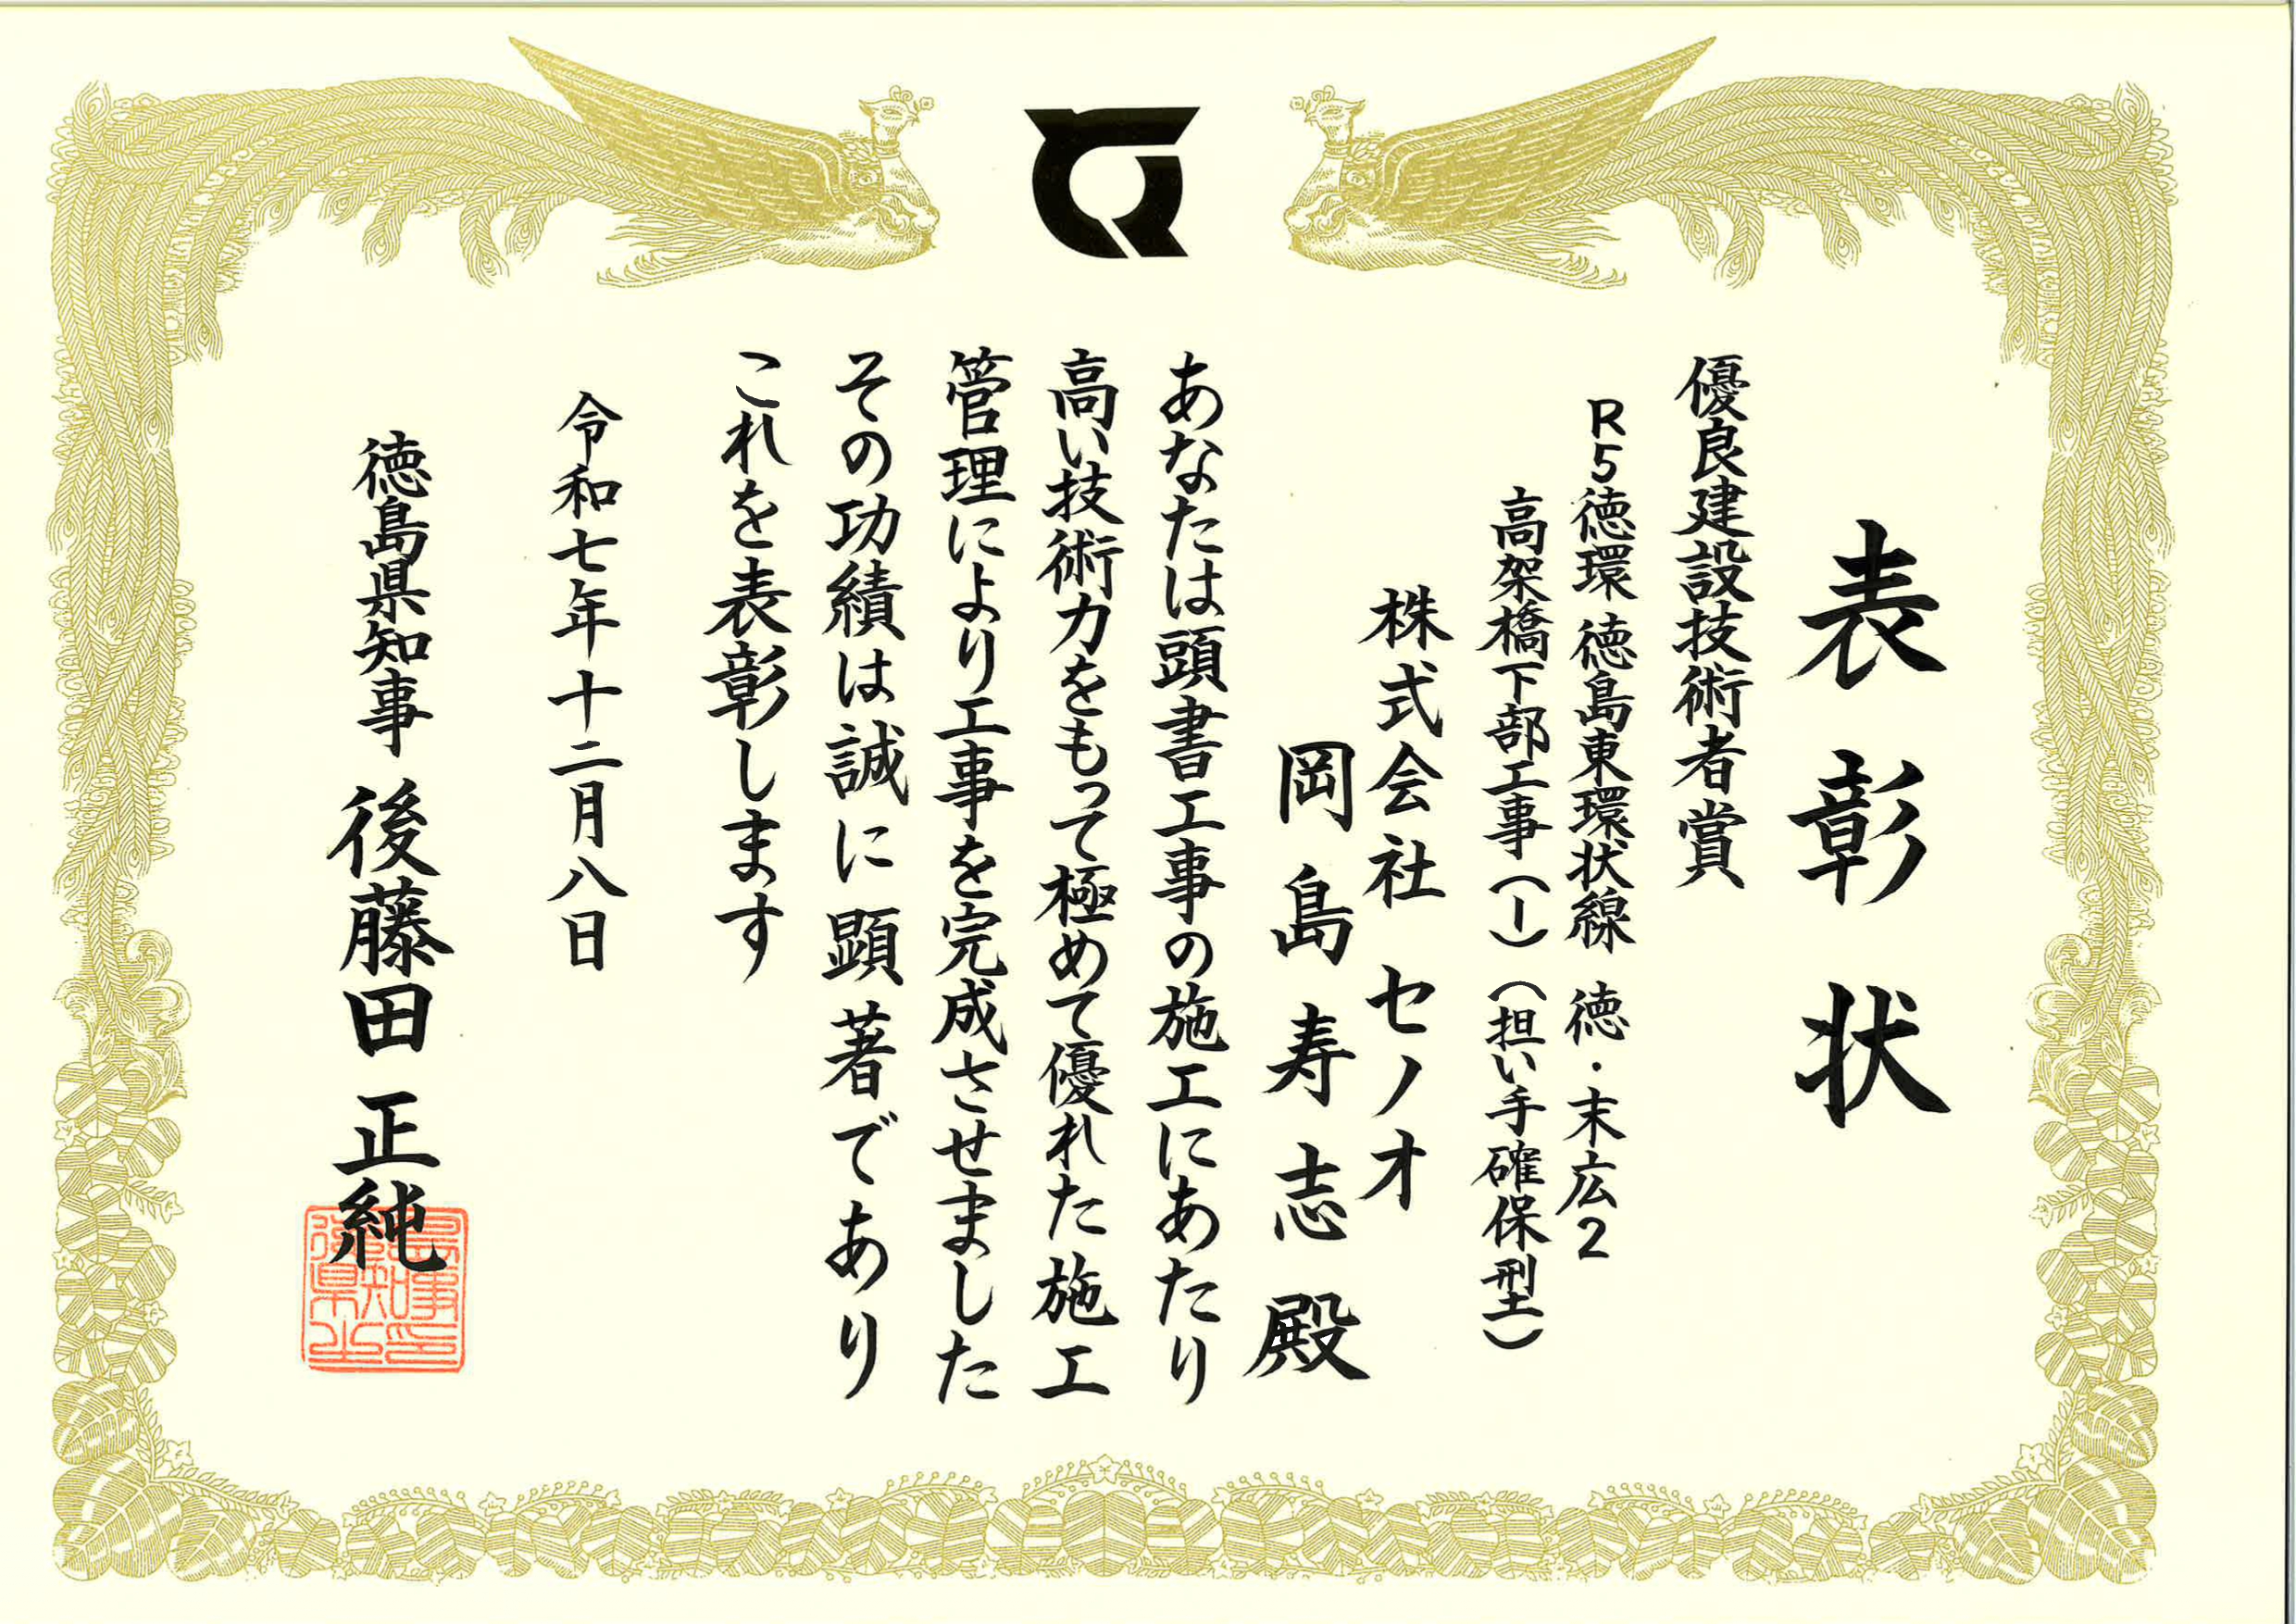 表彰状
優良建設技術者賞
R5徳環 徳島東環状線 徳・末広2
高架橋下部工事(1)(担い手確保型)
株式会社 セノオ
岡島寿志殿
あなたは頭書工事の施工にあたり
高い技術力をもって極めて優れた施工
管理により工事を完成させました
その功績は誠に顕著であり
これを表彰します
令和七年十二月八日
徳島県知事 後藤田正純
徳島県知事之印